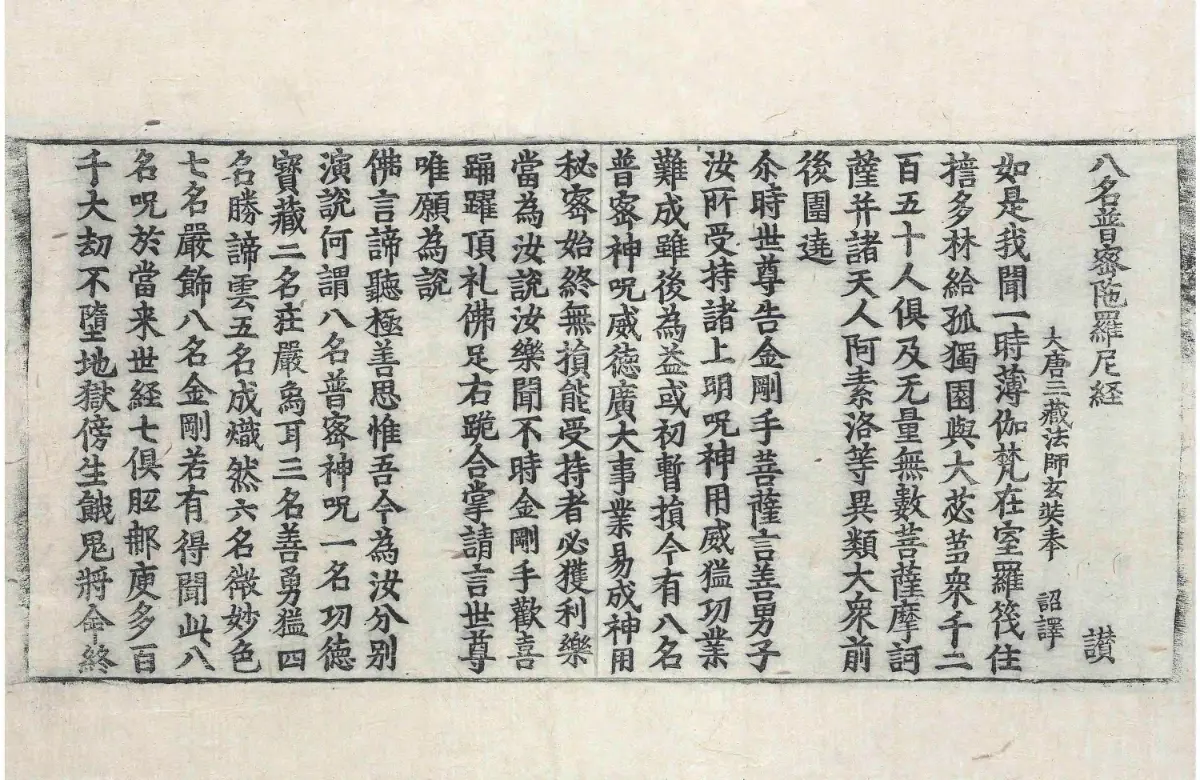 八名普密陁羅尼経 讃
大唐三藏法師玄奘奉 詔譯
如是我聞一時薄伽梵在室羅筏住
擔多林給孤獨園與大苾芻衆千二
百五十人俱及无量無數菩薩摩訶
薩并諸天人阿素洛等異類大衆前
後圍遶
尒時世尊告金剛手菩薩言善男子
汝所受持諸上明呪神用威猛功業
難成雖後為益或初暫損今有八名
普密神呪威德廣大事業易成神用
秘密始終無損能受持者必獲利樂
當為汝説汝樂聞不時金剛手歡喜
踊躍頂礼佛足右跪合掌請言世尊
唯願為説
佛言諦聽極善思惟吾今為汝分別
演説何謂八名普密神呪一名功德
寶藏二名莊嚴象耳三名善勇猛四
名勝諦雲五名成熾然六名微妙色
七名嚴飾八名金剛若有得聞此八
名呪於當来世経七俱胝那庾多百
千大劫不墮地獄傍生餓鬼將命終